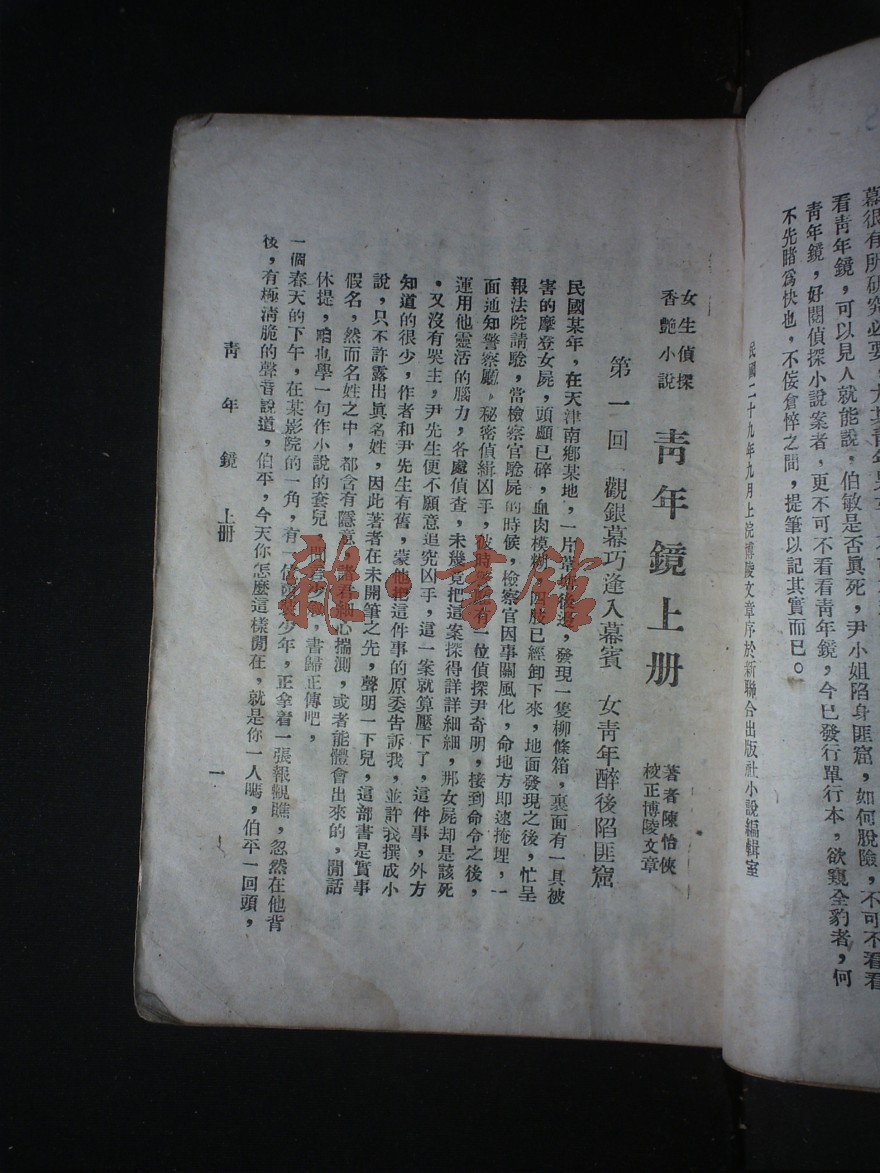 幕很有所研究必要
看靑年鏡，可以見人就能說，伯敏是否眞死，尹小姐陷身匪窟，如何脫險，不可不看看
靑年鏡，好閱偵探小說案者，更不可不看看靑年鏡，今已發行單行本，欲窺全豹者，何
不先睹爲快也，不侫倉悴之間，提筆以記其實而已。
民國二十九年九月上浣博陵文章序於新聯合出版社小說編輯室
女生偵探
香艷小說
靑年鏡上册
著者陳怡俠
校正博陵文章
第一回 觀銀幕巧逢入幕賓 女靑年醉後陷匪窟
民國某年，在天津南鄉某地，一片葦塘後邊，發現一隻柳條箱，裏面有一具被
害的摩登女屍，頭顱已碎，血肉模糊，四肢已經卸下來，地面發現之後，忙呈
報法院請騐，當檢察官騐屍的時候，檢察官因事關風化，命地方即速掩埋，一
面通知警察廳，秘密偵緝凶手，彼時有一位偵探尹奇明，接到命令之後，
運用他靈活的腦力，各處偵查，未幾竟把這案探得詳詳細細，那女屍却是該死
，又沒有哭主，尹先生便不願意追究凶手，這一案就算壓下了，這件事，外方
知道的很少，作者和尹先生有舊，蒙他把這件事的原委告訴我，並許我撰成小
說，只不許露出眞名姓，因此著者在未開筆之先，聲明一下兒，這部書是實事
假名，然而名姓之中，都含有隱意，諸君細心揣測，或者能體會出來的，閒話
休提，咱也學一句作小說的套兒，閒言少叙，書歸正傳吧，
一個春天的下午，在某影院的一角，有一位西裝少年，正拿着一張報觀瞧，忽然在他背
後，有極淸脆的聲音說道，伯平，今天你怎麼這樣閒在，就是你一人嗎，伯平一回頭，
靑年鏡 上册
一
雜·書館